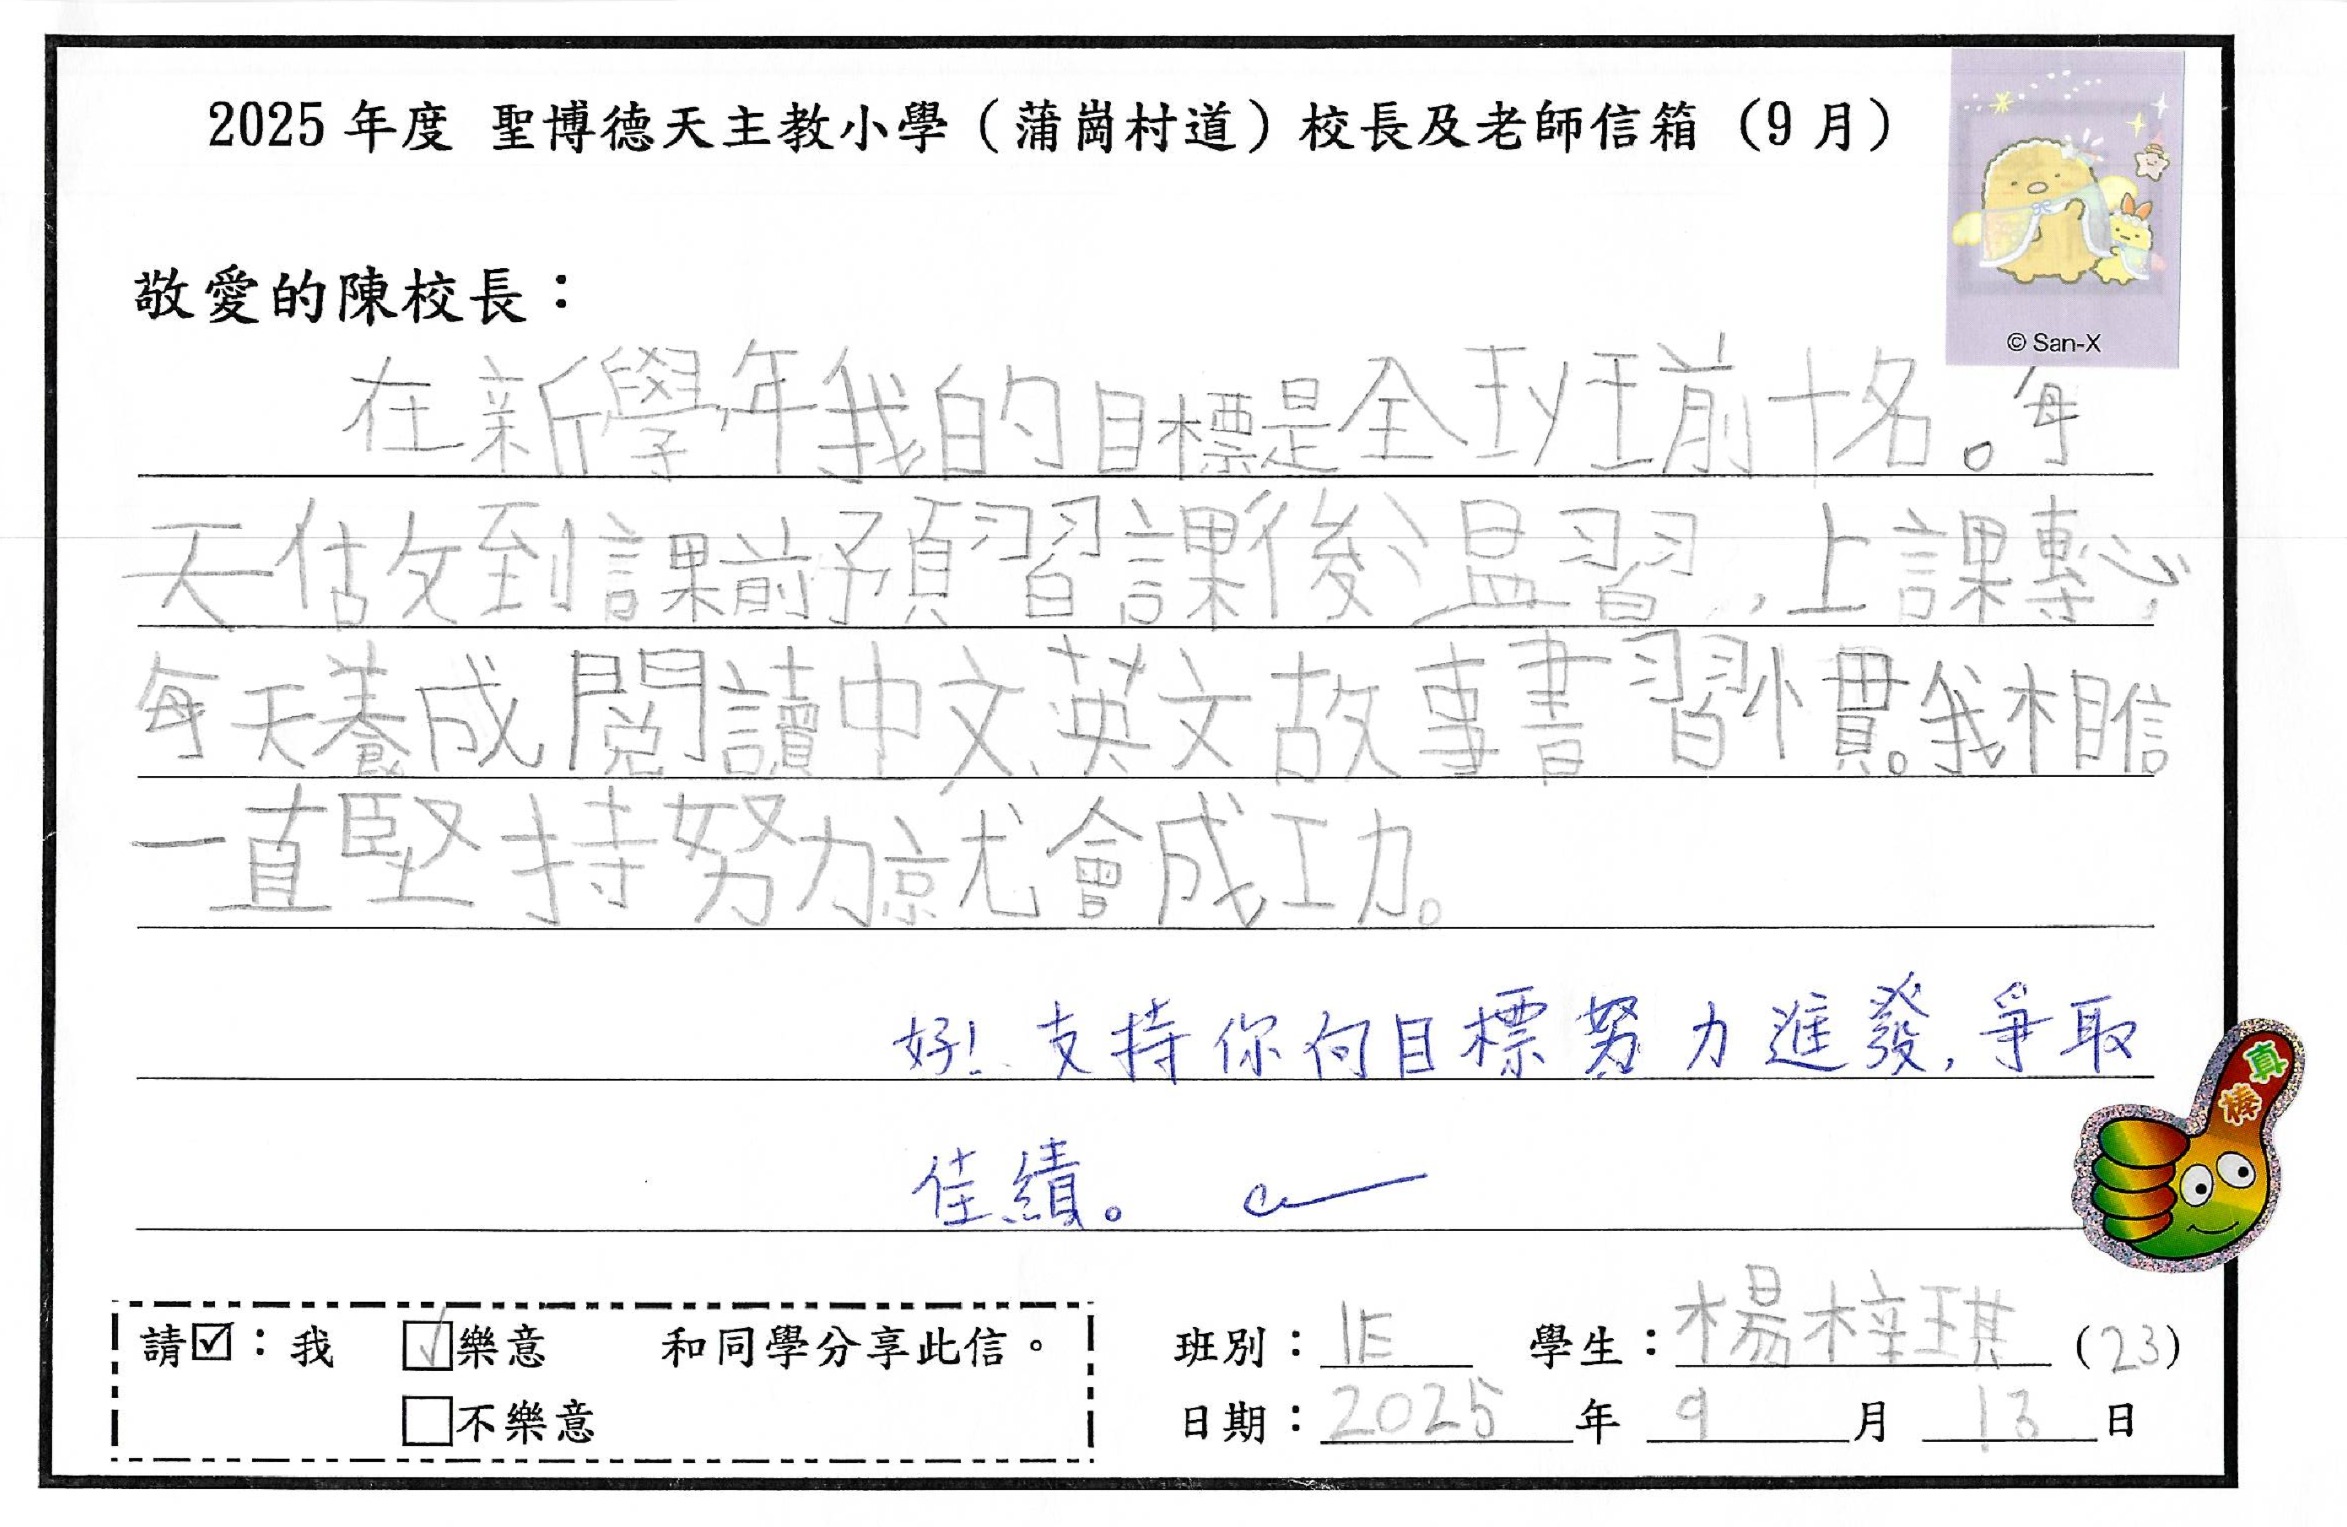 2025 年度 聖博德天主教小學（蒲崗村道）校長及老師信箱（9 月）
© San-X
敬愛的陳校長：
在新學年我的目標是全班前十名。每
天估攵到課前預習課後溫習，上課專心，
每天養成閱讀中文、英文故事書習慣。我相信
一直堅持努力就會成功。
好！支持你向目標努力進發，爭取
佳績。
真棒
請☑：我 ☑樂意 和同學分享此信。
□不樂意
班別：1E 學生：楊梓琪（23）
日期：2025 年 9 月 13 日